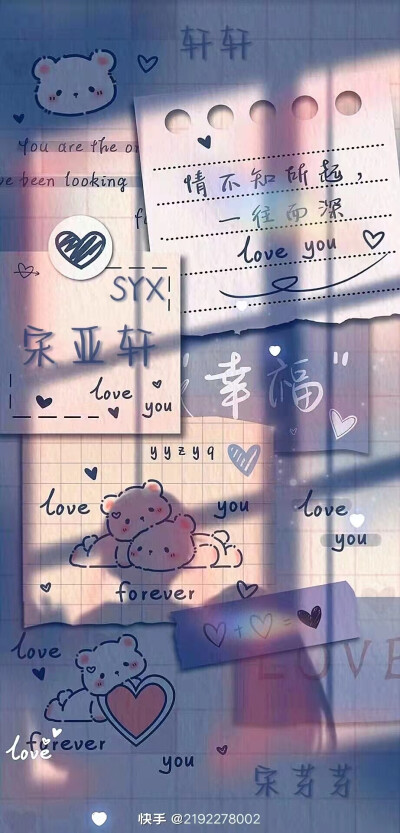 轩轩
You are the on
ve been looking
f
情不知所起，
一往而深
love you
SYX
宋亚轩
love
you
"幸福"
yyzyq
love you
forever
love
you
+ =
LOVE
love
forever
love
you
宋芽芽
快手 @2192278002